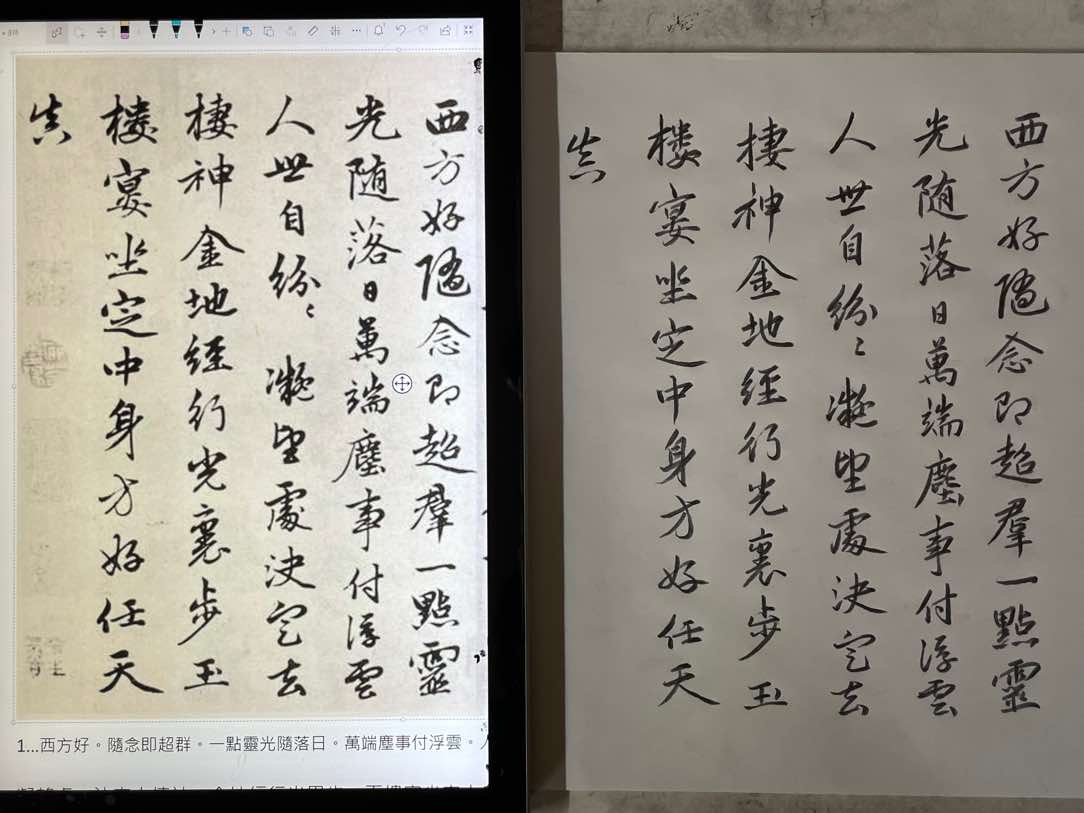 西方好隨念即超羣一點靈
光随落日萬端塵事付浮雲
人世自紛〻凝望處決定去
棲神金地經行光裏步玉
樓宴坐定中身方好任天
真
1...西方好。隨念即超群。一點靈光隨落日。萬端塵事付浮雲。
西方好隨念即超羣一點靈
光随落日萬端塵事付浮雲
人世自紛〻凝望處決定去
棲神金地經行光裏步玉
樓宴坐定中身方好任天
真